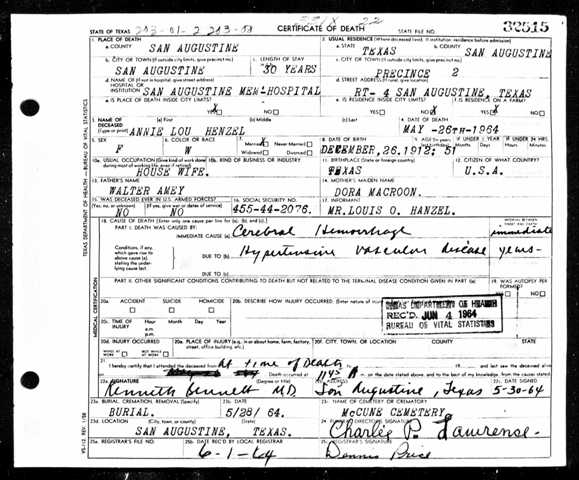 CERTIFICATE OF DEATH
STATE OF TEXAS
STATE FILE NO.
32515
1. PLACE OF DEATH
a. COUNTY
SAN AUGUSTINE
2. USUAL RESIDENCE (Where deceased lived. If institution: residence before admission)
a. STATE
TEXAS
b. COUNTY
SAN AUGUSTINE
b. CITY OR TOWN (If outside city limits, give precinct no.)
SAN AUGUSTINE
c. LENGTH OF STAY
30 YEARS
c. CITY OR TOWN (If outside city limits, give precinct no.)
PRECINCE 2
d. NAME OF (If not in hospital, give street address)
HOSPITAL OR
INSTITUTION
SAN AUGUSTINE MEM-HOSPITAL
d. STREET ADDRESS (If rural, give location)
RT- 4 SAN AUGUSTINE, TEXAS
e. IS PLACE OF DEATH INSIDE CITY LIMITS?
YES NO
e. IS RESIDENCE INSIDE CITY LIMITS?
YES NO
f. IS RESIDENCE ON A FARM?
YES NO
3. NAME OF DECEASED
(Type or print)
(a) First
(b) Middle
(c) Last
ANNIE LOU HENZEL
4. DATE OF DEATH
MAY -26TH-1964
5. SEX
F
6. COLOR OR RACE
W
7. Married Never Married
Widowed Divorced
8. DATE OF BIRTH
DECEMBER,26.1912;
51
10a. USUAL OCCUPATION (Give kind of work done
HOUSE WIFE.
10b. KIND OF BUSINESS OR INDUSTRY
11. BIRTHPLACE (State or foreign country)
TEXAS
12. CITIZEN OF WHAT COUNTRY?
U.S.A.
13. FATHER'S NAME
WALTER AMEY
14. MOTHER'S MAIDEN NAME
DORA MACROON.
15. WAS DECEASED EVER IN U.S. ARMED FORCES?
(Yes, no, or unknown)
(If yes, give war or dates of service)
NO NO
16. SOCIAL SECURITY NO.
455-44-2076.
17. INFORMANT
MR.LOUIS O. HANZEL.
18. CAUSE OF DEATH [Enter only one cause per line for (a), (b), and (c).]
PART I. DEATH WAS CAUSED BY:
IMMEDIATE CAUSE (a)
Cerebral Hemorrhage
immediate
Conditions, if any,
which gave rise to
above cause (a),
stating the under-
lying cause last.
DUE TO (b)
Hypertensive vascular disease
years-
DUE TO (c)
PART II. OTHER SIGNIFICANT CONDITIONS CONTRIBUTING TO DEATH BUT NOT RELATED TO THE TERMINAL DISEASE CONDITION GIVEN IN PART I(a)
19. WAS AUTOPSY PERFORMED?
YES NO
20a. ACCIDENT SUICIDE HOMICIDE
20b. DESCRIBE HOW INJURY OCCURRED.
TEXAS DEPARTMENT OF HEALTH
REC'D JUN 4 1964
BUREAU OF VITAL STATISTICS
20c. TIME OF INJURY
Hour Month Day Year
a.m.
p.m.
20d. INJURY OCCURRED
20e. PLACE OF INJURY (e.g., in or about home, farm, factory, street, office building, etc.)
20f. CITY, TOWN, OR LOCATION
COUNTY
STATE
21. I hereby certify that I attended the deceased
At time of Death
and last saw the deceased alive
Death occurred at
1145 A
m. on the date stated above, and to the best of my knowledge, from the causes stated.
22a. SIGNATURE
(Degree or title)
Kenneth Bennett M.D.
22b. ADDRESS
San Augustine, Texas
22c. DATE SIGNED
5-30-64
23a. BURIAL, CREMATION, REMOVAL (Specify)
BURIAL.
23b. DATE
5/28/ 64.
23c. NAME OF CEMETERY OR CREMATORY
McCUNE CEMETERY
23d. LOCATION
(City, town, or county)
(State)
SAN AUGUSTINE, TEXAS.
24. FUNERAL DIRECTOR'S SIGNATURE
Charlie P. Lawrense.
25a. REGISTRAR'S FILE NO.
25b. DATE REC'D BY LOCAL REGISTRAR
6-1-64
25c. REGISTRAR'S SIGNATURE
Dennis Price
TEXAS DEPARTMENT OF HEALTH—BUREAU OF VITAL STATISTICS
MEDICAL CERTIFICATION